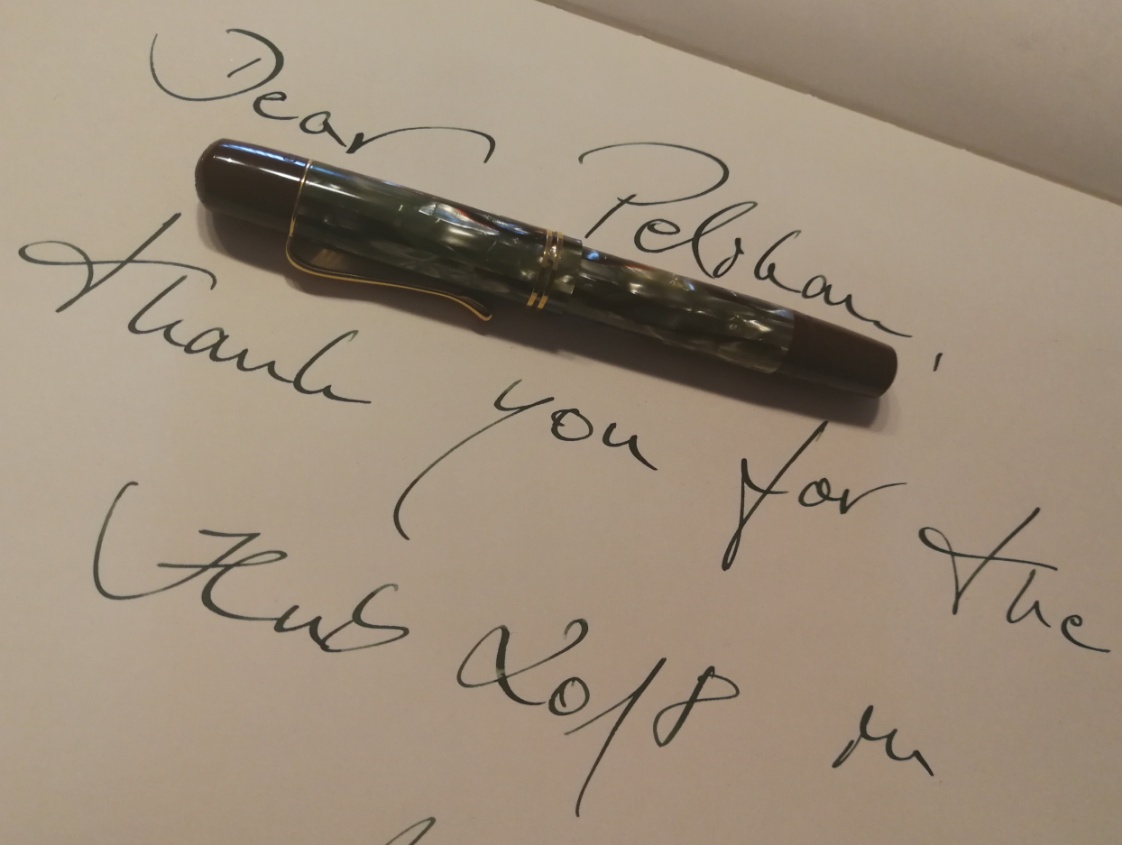 Dear Pelikan,
thank you for the
Hub 2018 in